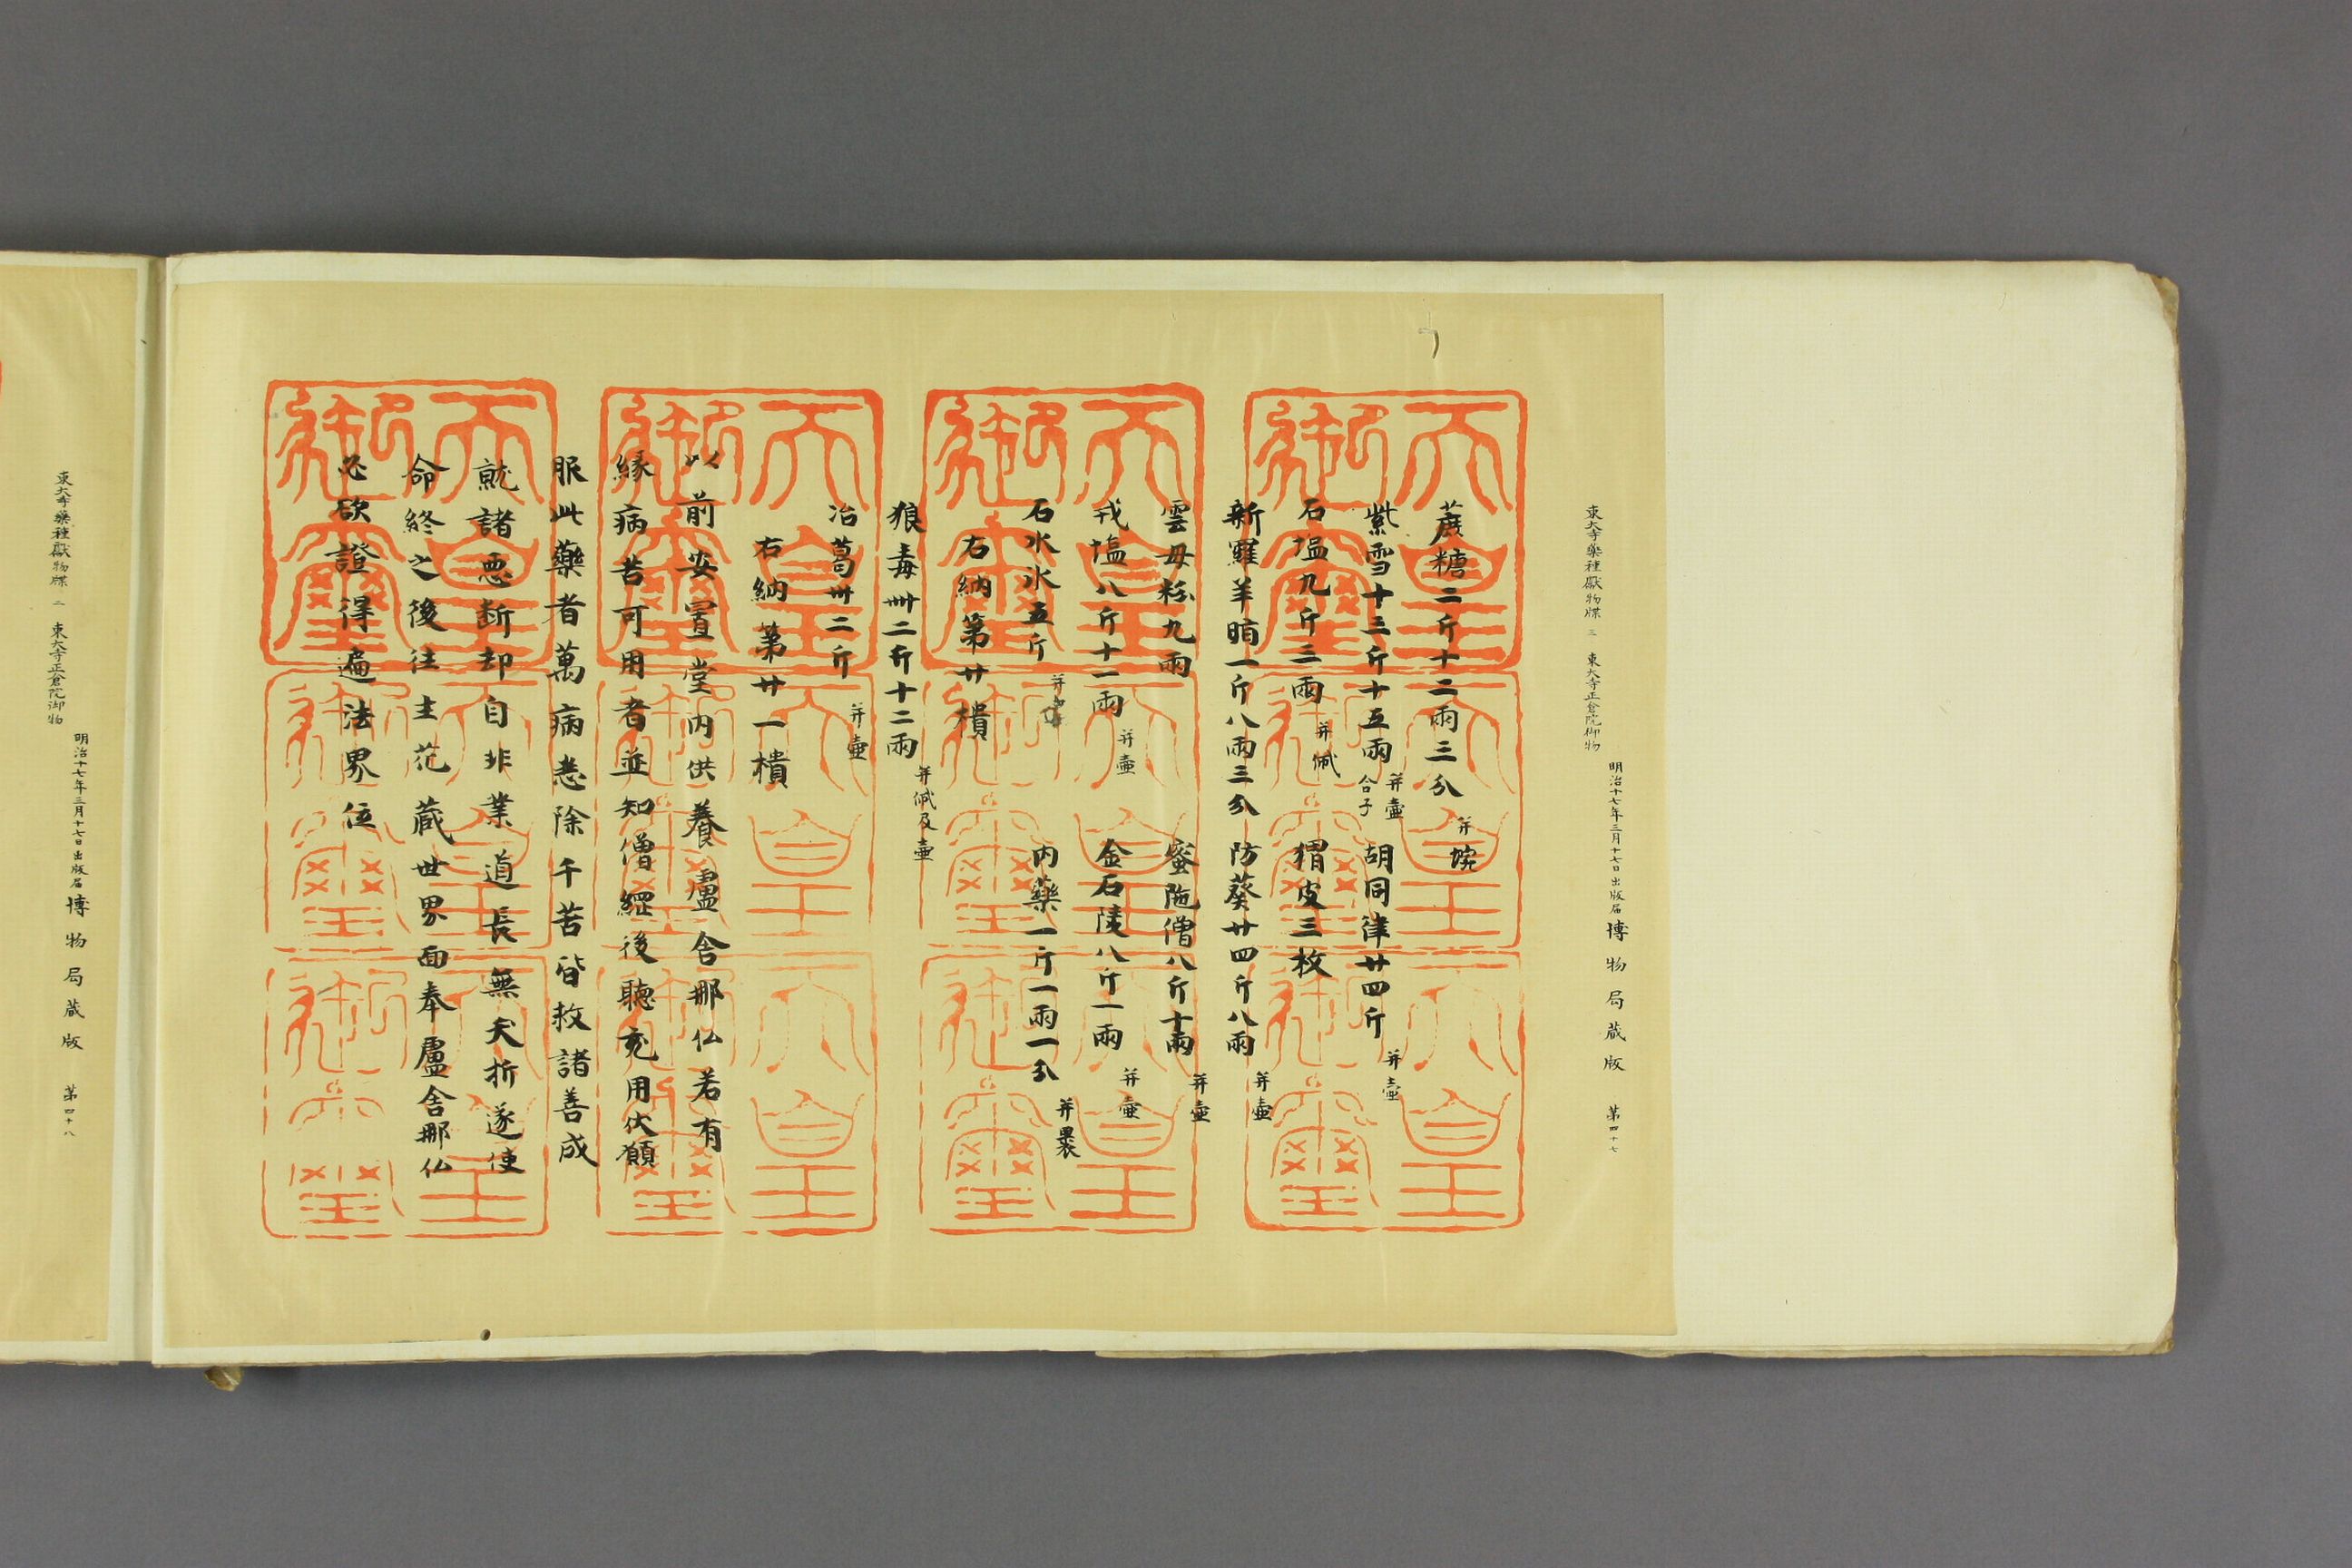 東大寺藥種獻物牒 三 東大寺正倉院御物
明治十七年三月十七日出版届 博物局蔵版 第四十七
蔗糖二斤十二兩三分 并埦
紫雪十三斤十五兩 并壷合子 胡同律廿四斤 并壷
石塩九斤三兩 并𤬪 猬皮三枚
新羅羊脂一斤八兩三分 防葵廿四斤八兩 并壷
雲母粉九兩 蜜陁僧八斤十兩 并壷
戎塩八斤十一兩 并壷 金石陵八斤一兩 并壷
石水氷五斤 并 内藥一斤一兩一分 并裹
右納第廿樻
狼毒卌二斤十二兩 并𤬪及壷
冶葛卅二斤 并壷
右納第廿一樻
以前安置堂内供養盧舎那仏若有
縁病苦可用者並知僧綱後聴充用伏願
服此藥者萬病悉除千苦皆救諸善成
就諸悪断却自非業道長無夭折遂使
命終之後往生花蔵世界面奉盧舎那仏
必欲證得遍法界位
天皇御璽
天皇御璽
天皇御璽
天皇御璽
天皇御璽
天皇御璽
天皇御璽
天皇御璽
天皇御璽
天皇御璽
天皇御璽
天皇御璽
東大寺藥種獻物牒 三 東大寺正倉院御物
明治十七年三月十七日出版届 博物局蔵版 第四十八